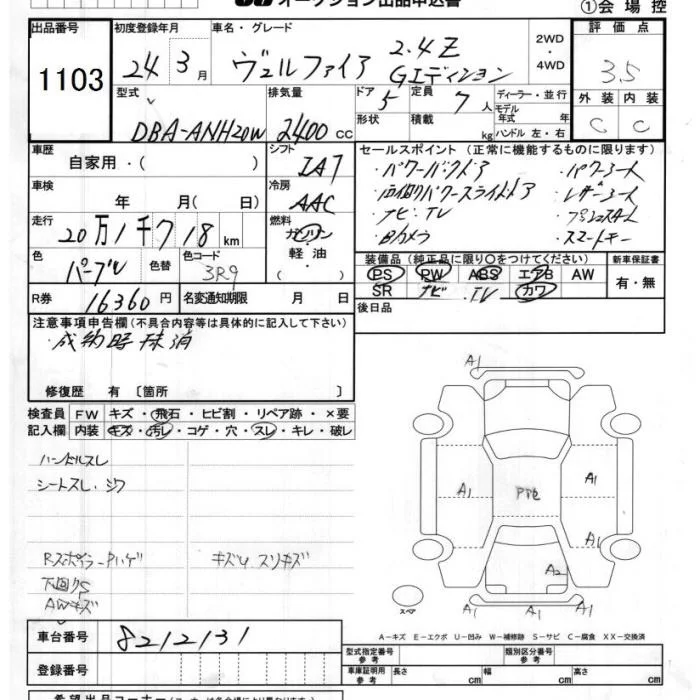 オークション出品申込書
①会場控
出品番号 初度登録年月 車名・グレード 2WD・4WD 評価点
1103 24年 3月 ヴェルファイア 2.4Z Gエディション 3.5
型式 排気量 ドア 5 定員 7人 ディーラー・並行 外装 内装
DBA-ANH20W 2400cc 形状 積載 kg モデル年式 年 ハンドル 左・右 C C
車歴 自家用・( ) シフト IA7
セールスポイント(正常に機能するものに限ります)
・パワーバックドア ・パワーシート
・両側パワースライドドア ・レザーシート
・ナビ・TV ・プッシュスタート
・Bカメラ ・スマートキー
車検 年 月( 日) 冷房 AAC
走行 20万1千718km 燃料 ガソリン 軽油 ( )
色 パープル 色替 色コード 3R9
装備品(純正品に限り○をつけてください) 新車保証書
PS PW ABS エアB AW 有・無
SR ナビ TV カワ
R券 16360円 名変通知期限 月 日 後日品
注意事項申告欄(不具合内容等は具体的に記入して下さい)
・成約時抹消
修復歴 有 〔箇所 〕
検査員 FW キズ・飛石・ヒビ割・リペア跡・×要
記入欄 内装 キズ・汚レ・コゲ・穴・スレ・キレ・破レ
ハンドルスレ
シートスレ・シワ
Rスポイラーハゲ キズU スリキズ
下回りS
AWキズ
A1
A1 P飛 A1
A1
A2
スペア A1 A1 A1
A-キズ E-エクボ U-凹み W-補修跡 S-サビ C-腐食 XX-交換済
車台番号 8212131
型式指定番号 参考 類別区分番号 参考
登録番号
車庫証明用 参考 長さ cm 幅 cm 高さ cm
希望出品コーナー